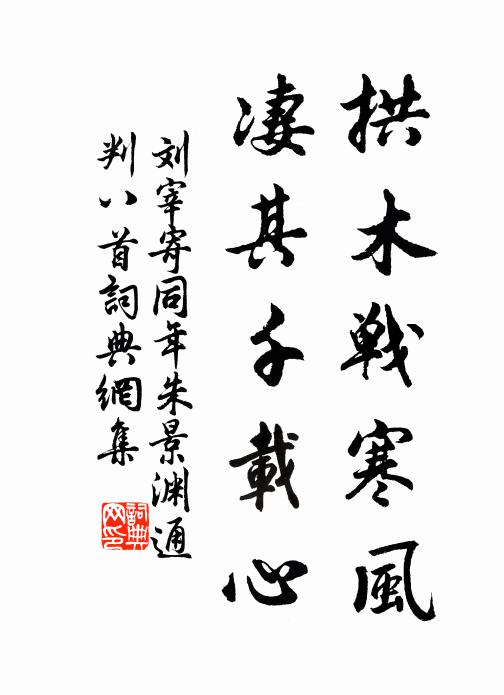 拱木戰寒風
凄其千載心
刘宰寄同年朱景渊通
判八首詞典網集
詞典
网印